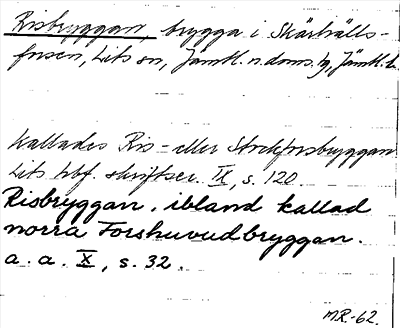 Risbryggan, brygga i Skärhålls-
forsen, Lits sn, Jämtl. n. doms. tg, Jämtl. l.
kallades Ris- eller Strokforsbryggan
Lits hbf. skriftser. IX, s. 120
Risbryggan. ibland kallad
norra Forshuvudbryggan.
a. a. X, s. 32.
M.R.-62.